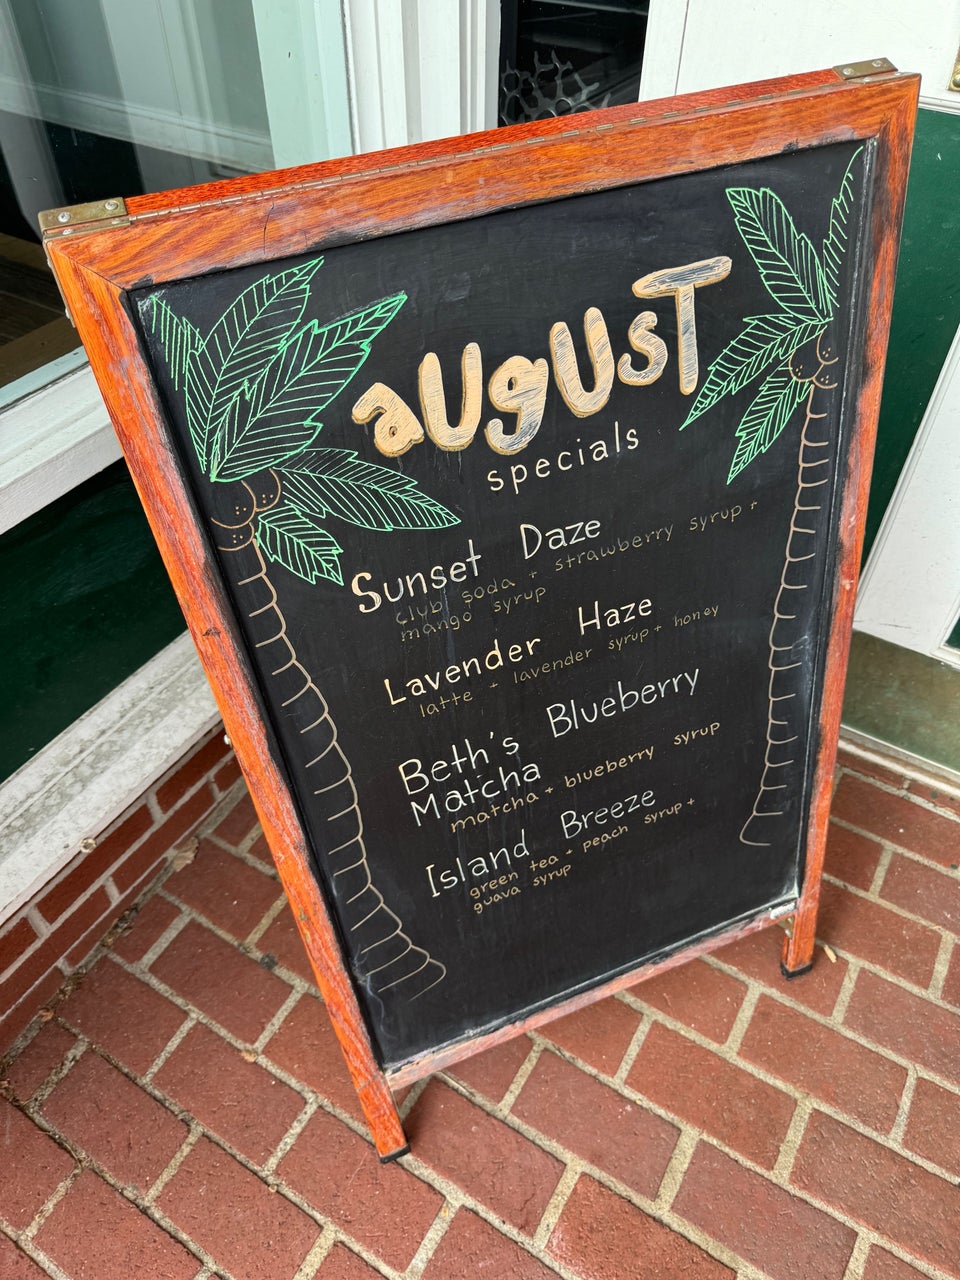 aUgUsT
specials
Sunset Daze
club soda + strawberry syrup +
mango syrup
Lavender Haze
latte + lavender syrup + honey
Beth's Blueberry
Matcha
matcha + blueberry syrup
Island Breeze
green tea + peach syrup +
guava syrup